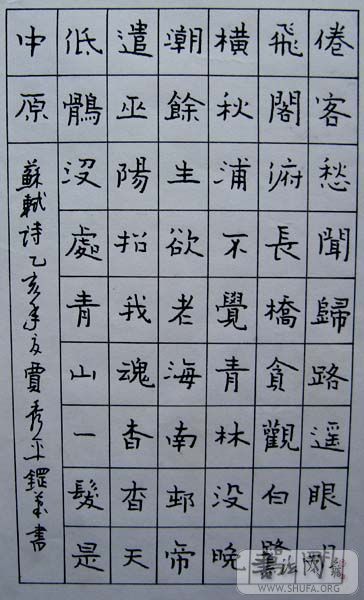 倦客愁聞歸路遥眼明
飛閣俯長橋貪觀白鷺
橫秋浦不覺青林没晚
潮餘生欲老海南邨帝
遣巫陽招我魂杳杳天
低鶻没處青山一髮是
中原
蘇軾詩乙亥年賈秀平書
書法網
WWW.SHUFA.ORG